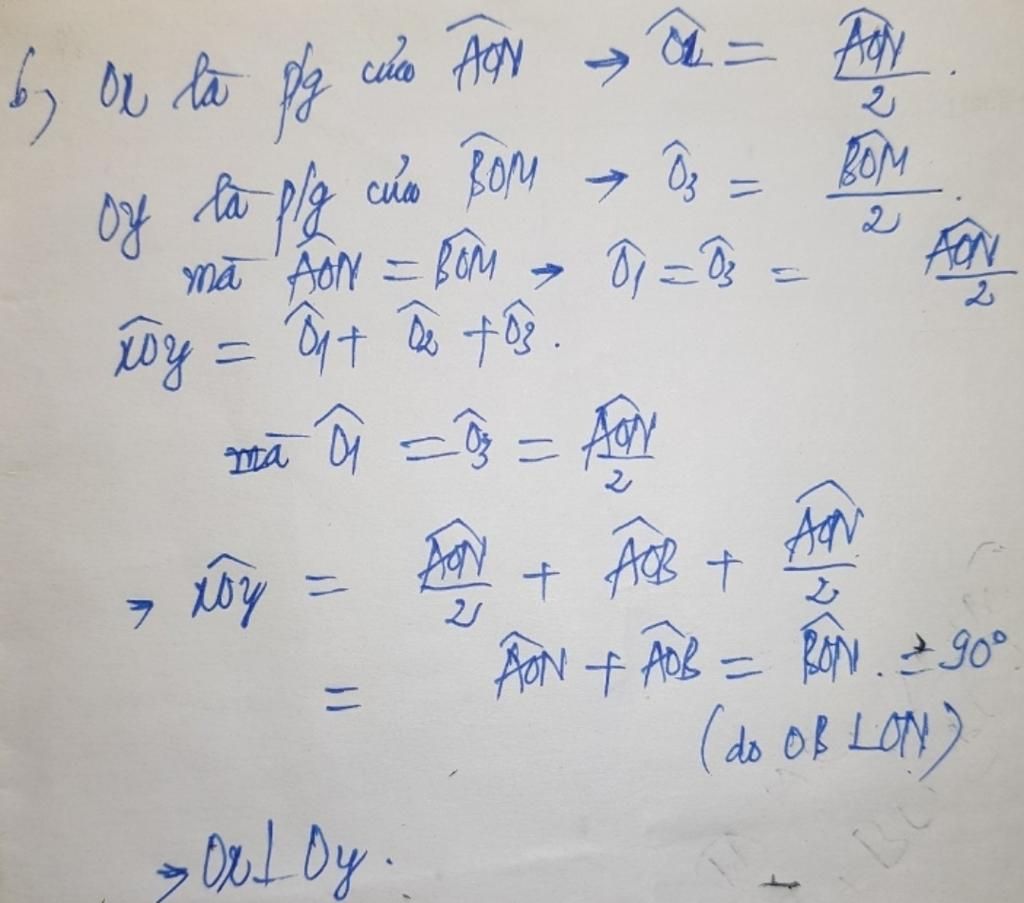 b) Ox là p/g của \widehat{AON} → \widehat{O1} = \frac{\widehat{AON}}{2}.
Oy là p/g của \widehat{BOM} → \widehat{O3} = \frac{\widehat{BOM}}{2}.
mà \widehat{AON} = \widehat{BOM} → \widehat{O1} = \widehat{O3} = \frac{\widehat{AON}}{2}
\widehat{xOy} = \widehat{O1} + \widehat{O2} + \widehat{O3}.
mà \widehat{O1} = \widehat{O3} = \frac{\widehat{AON}}{2}
→ \widehat{xOy} = \frac{\widehat{AON}}{2} + \widehat{AOB} + \frac{\widehat{AON}}{2}
= \widehat{AON} + \widehat{AOB} = \widehat{BON}. = 90°
(do OB ⊥ ON)
→ Ox ⊥ Oy.